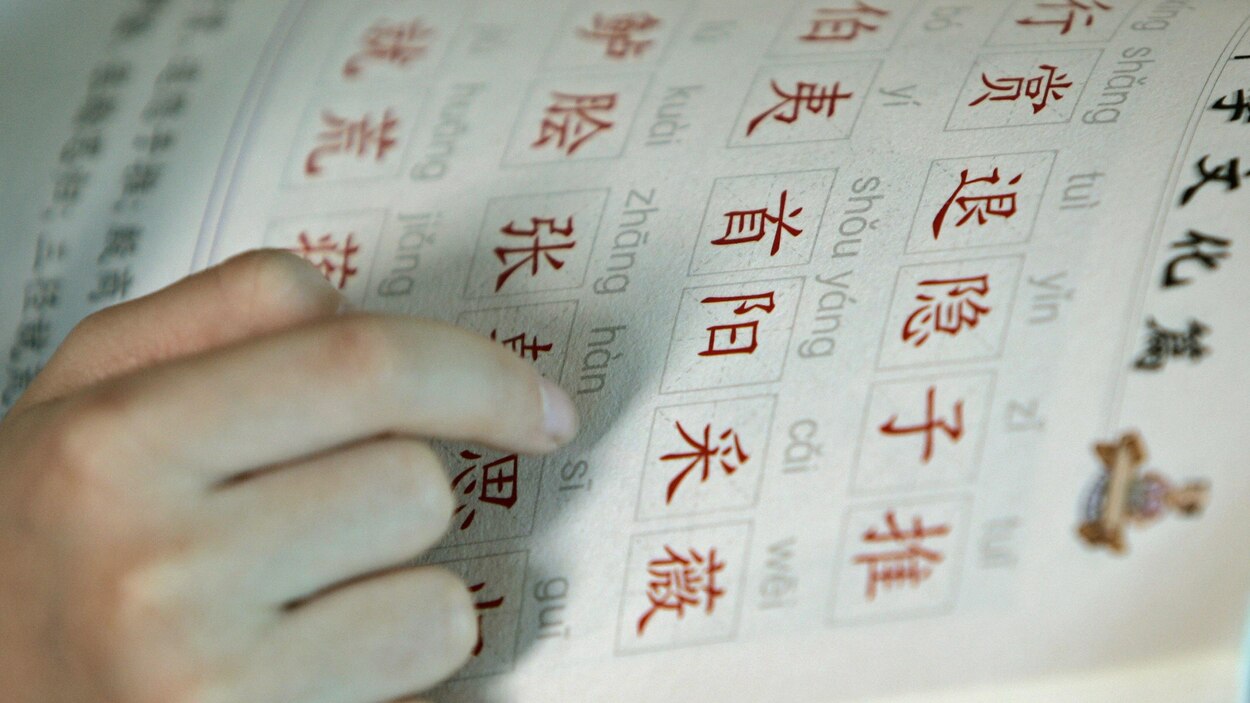 文化篇
shǎng tuì yǐn zǐ tuī
行赏退隐子推
bó yí shǒu yáng cǎi wēi
伯夷首阳采薇
lú kuài zhāng hàn sī guī
鲈脍张思
jiù huāng jiǎng
就荒蒋